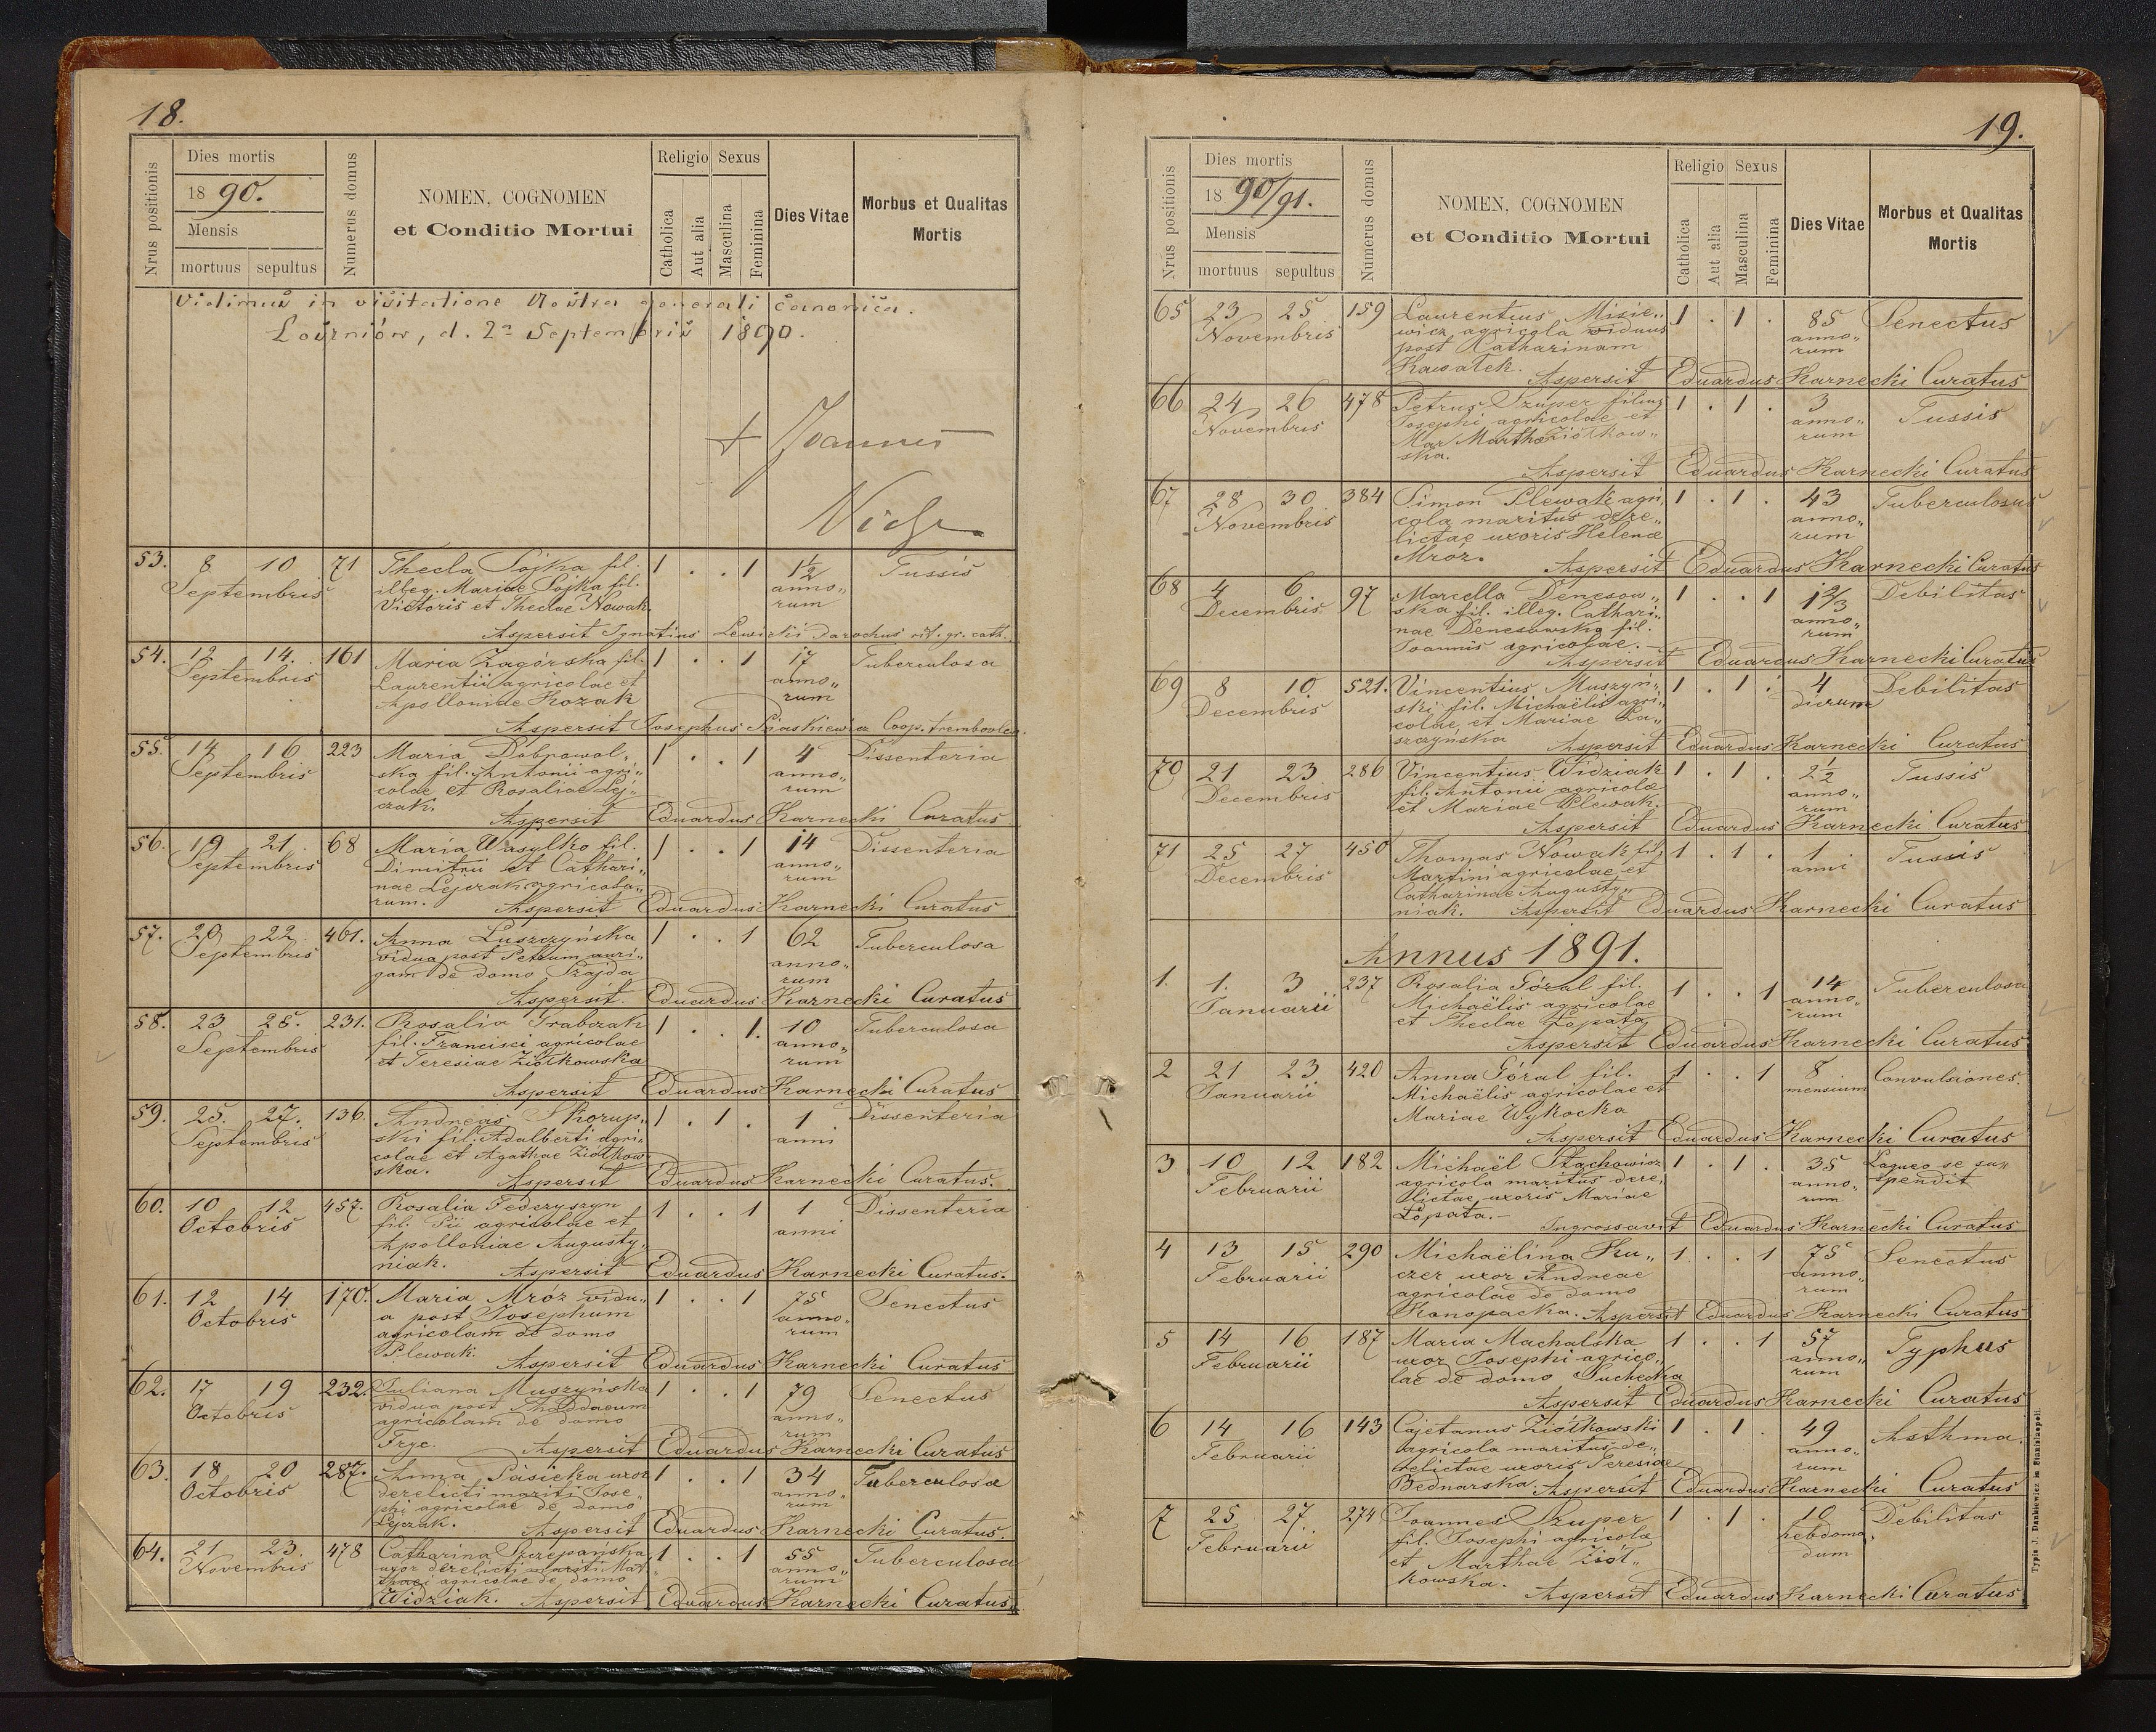 18.
Nrus positionis
Dies mortis
1890.
Mensis
mortuus sepultus
Numerus domus
NOMEN, COGNOMEN
et Conditio Mortui
Religio Sexus
Catholica
Aut alia
Masculina
Feminina
Dies Vitae
Morbus et Qualitas
Mortis
Vidimus in visitatione Nostra generali canonica.
d. 2a Septembris 1890.
+ Joannes
53. 8 10 71 Thecla Sojka fil. 1 . . 1 1½ Tussis
Septembris illeg. Mariae Sojka fil. anno„
Victoris et Theclae Nowak. rum
Aspersit Ignatius Lewicki Parochus rit. gr. cath.
54. 12 14. 161 Maria Zagórska fil. 1 . . 1 17 Tuberculosa
Septembris Laurentii agricolae et anno„
Apolloniae Kozak rum
Aspersit Josephus Piaskiewicz Coop. trembovlen.
55. 14 16 223 Maria Dobrowol„ 1 . . 1 4 Dissenteria
Septembris ska fil. Antonii agri„ anno„
colae et Rosaliae Lej„ rum
czak.
Aspersit Eduardus Karnecki Curatus
56. 19 21. 68 Maria Wasylko fil. 1 . . 1 14 Dissenteria
Septembris Dimitrii et Cathari„ anno„
nae Lejczak agricola„ rum
rum. Aspersit Eduardus Karnecki Curatus
57. 20 22 461. Anna Luszczyńska 1 . . 1 62 Tuberculosa
Septembris vidua post Petrum auri„ anno„
gam de domo Szajda rum
Aspersit. Eduardus Karnecki Curatus
58. 23 25. 231. Rosalia Grabczak 1 . . 1. 10 Tuberculosa
Septembris fil. Francisci agricolae anno„
et Teresiae Ziółkowska rum
Aspersit Eduardus Karnecki Curatus
59. 25. 27. 136. Andreas Skorup„ 1 . 1 . 1 Dissenteria
Septembris ski fil. Adalberti agri„ anni
colae et Agathae Ziółkow„
ska.
Aspersit Eduardus Karnecki Curatus.
60. 10 12 457. Rosalia Federyszyn 1 . . 1 1 Dissenteria
Octobris fil. Pii agricolae et anni
Apolloniae Augusty„
niak. Aspersit Eduardus Karnecki Curatus.
61. 12 14 170. Maria Mroz vidu„ 1 . . 1 75 Senectus
Octobris a post Josephum anno„
agricolam de domo rum
Plewak. Aspersit Eduardus Karnecki Curatus
62. 17 19 232. Juliana Muszyńska 1 . . 1 79 Senectus
Octobris vidua post Thaddaeum anno„
agricolam de domo rum
Fryc. Aspersit Eduardus Karnecki Curatus
63. 18 20 287. Anna Pasicka uxor 1 . . 1 34 Tuberculosa
Octobris derelicti mariti Jose„ anno„
phi agricolae de domo rum
Lejczak. Aspersit Eduardus Karnecki Curatus.
64. 21 23 478 Catharina Szczepańska 1 . . 1 55 Tuberculosa
Novembris uxor derelicti mariti Mat„ anno„
thaei agricolae de domo rum
Widziak. Aspersit Eduardus Karnecki Curatus.
19.
Nrus positionis
Dies mortis
1890/91.
Mensis
mortuus sepultus
Numerus domus
NOMEN, COGNOMEN
et Conditio Mortui
Religio Sexus
Catholica
Aut alia
Masculina
Feminina
Dies Vitae
Morbus et Qualitas
Mortis
65 23 25 159 Laurentius Misie„ 1 . 1 . 85 Senectus
Novembris wicz agricola viduus anno„
post Catharinam rum
Kawałek. Aspersit Eduardus Karnecki Curatus
66 24 26 478 Petrus Szuper filius 1 . 1 . 3 Tussis
Novembris Josephi agricolae et anno„
Mar Marthae Ziółkow„ rum
ska.
Aspersit Eduardus Karnecki Curatus
67 28 30 384 Simon Plewak agri„ 1 . 1 . 43 Tuberculosus
Novembris cola maritus dere„ anno„
lictae uxoris Helenae rum
Mróz. Aspersit Eduardus Karnecki Curatus
68 4 6 97 Marcella Denesow„ 1 . . 1 1⅔ Debilitas
Decembris ska fil. illeg. Cathari„ anno„
nae Denesowska fil. rum
Joannis agricolae.
Aspersit Eduardus Karnecki Curatus
69 8 10 521. Vincentius Muszyń„ 1 . 1 . 4 Debilitas
Decembris ski fil. Michaëlis agri„ dierum
colae et Mariae Ła„
szczyńska Aspersit Eduardus Karnecki Curatus
70 21 23 286 Vincentius Widziak 1 . 1 . 2½ Tussis
Decembris fil. Antonii agricolae anno„
et Mariae Plewak. rum
Aspersit Eduardus Karnecki Curatus
71 25 27 450 Thomas Nowak fil. 1 . 1 . 1 Tussis
Decembris Martini agricolae et anni
Catharinae Augusty„
niak. Aspersit Eduardus Karnecki Curatus
Annus 1891.
1. 1. 3 237 Rosalia Góral fil. 1 . . 1 14 Tuberculosa
Januarii Michaëlis agricolae anno„
et Theclae Łopata rum
Aspersit Eduardus Karnecki Curatus
2 21 23 420 Anna Góral fil. 1 . . 1 8 Convulsiones.
Januarii Michaëlis agricolae et mensium
Mariae Wykocka
Aspersit Eduardus Karnecki Curatus
3 10 12 182 Michaël Stachowicz 1 . 1 . 35 Laqueo se su„
Februarii agricola maritus dere„ anno„ spendit
lictae uxoris Mariae rum
Łopata.
Ingrossavit Eduardus Karnecki Curatus
4 13 15 290 Michaëlina Ku„ 1 . . 1 75 Senectus
Februarii czer uxor Andreae anno„
agricolae de domo rum
Konopacka. Aspersit Eduardus Karnecki Curatus
5 14 16 187 Maria Machalska 1 . . 1 57 Typhus
Februarii uxor Josephi agrico„ anno„
lae de domo Suchecka rum
Aspersit Eduardus Karnecki Curatus
6 14 16 143 Cajetanus Ziółkowski 1 . 1 . 49 Asthma.
Februarii agricola maritus de„ anno„
relictae uxoris Teresiae rum
Bednarska. Aspersit Eduardus Karnecki Curatus
7 25 27. 274 Joannes Szuper 1 . 1 . 10 Debilitas
Februarii fil. Josephi agricolae hebdoma„
et Marthae Ziół„ dum
kowska.
Aspersit Eduardus Karnecki Curatus
Typis J. Dankiewicz in Stanislopoli.